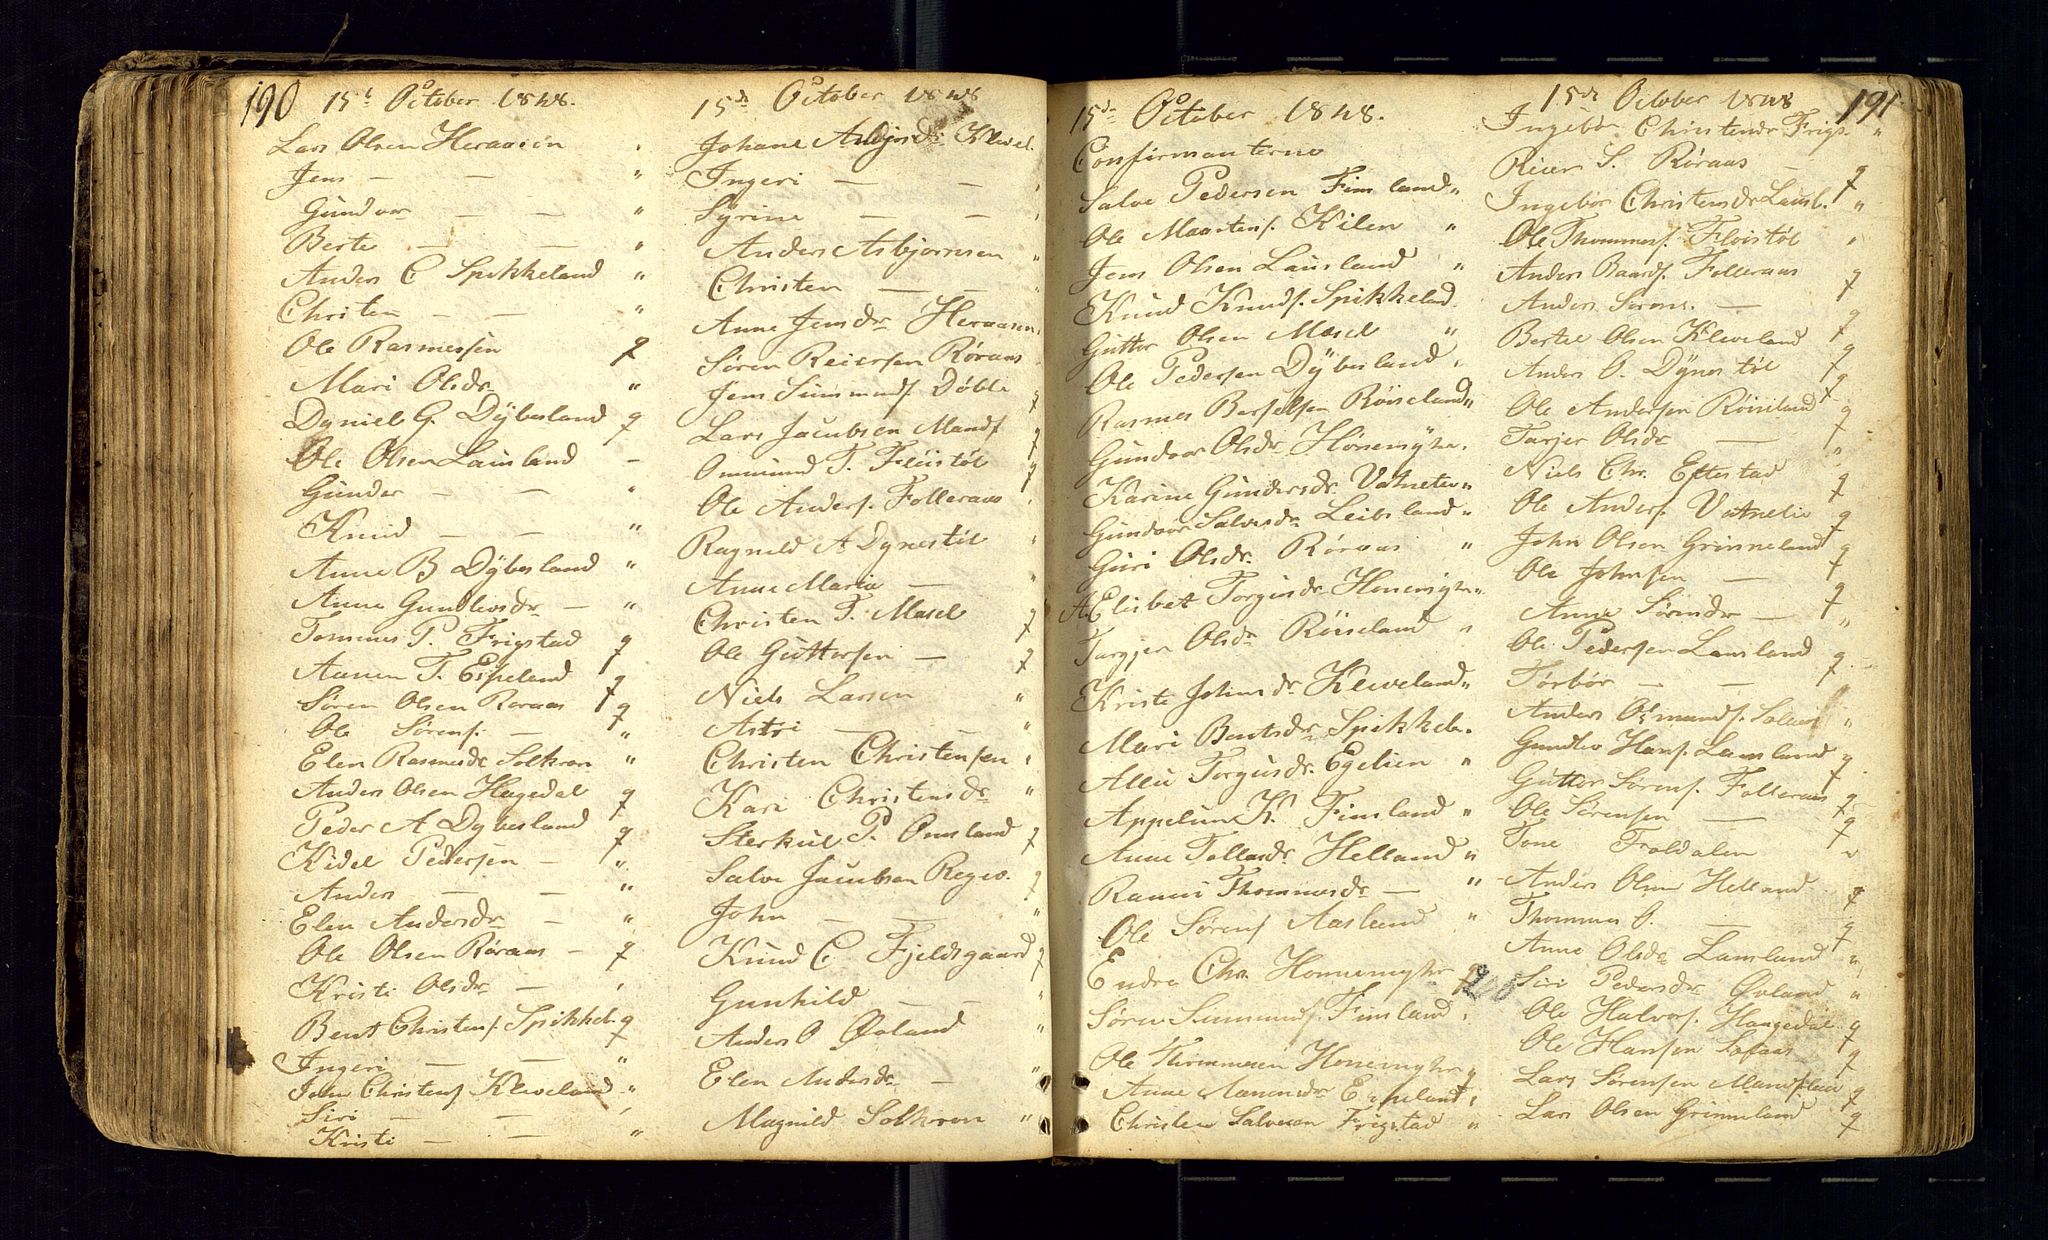 190
15d October 1848.
Lars Olsen Heraasen
Jens — — "
Gundvor — — "
Berte — — "
Anders C Spikkeland "
Christen — — "
Ole Rasmessen g
Mari Olsdr "
Dyniel G. Dÿbesland g
Ole Olsen Lauland —
Gunder — — "
Knud — — "
Anne B Dÿbesland "
Anne Gunlevsdr — "
Tommes P. Frigstad g
Aanen T. Espeland g
Sören Olsen Röraas g
Ole Sörens. — "
Elen Rasmusdr Solkron "
Anders Olsen Hagedal g
Peder A Dybesland g
Kidel Pedersen — "
Anders — — "
Elen Andersdr — "
Ole Olsen Röraas — g
Kristi Olsdr —
Bent Christens. Spikkel. g
Ingeri — — "
John Christens. Kleveland "
Siri — —
Kristi — — "
15d October 1848
Johane Asbjörsdr Klevel.
Ingeri — —
Syrine — —
Anders Asbjornsen
Christen — —
Anne Jensdr Heraasen
Sören Reiersen Röraas
Jens Simmunds. Döble g
Lars Jacobsen Mands. g
Ommund T. Flöistöl g
Ole Anders. Folleraas
Ragnild A Dynestöl
Anne Maria —
Christen T. Masel g
Ole Guttorsen — g
Niels Larsen "
Astri — — "
Christen Christensen
Kari Christensdr "
Sterkul P. Omland g
Salve Jacobsen Regev. g
John — — "
Knud C Fjeldsgaard g
Gunhild — — "
Anders O Övland "
Elen Andersdr — "
Magnild Solkron "
15d October 1848.
Confirmanterne
Salve Pedersen Finsland "
Ole Maartens. Kilen "
Jens Olsen Lauland "
Knud Knuds. Spikkeland
Guttor Olsen Masel "
Ole Pedersen Dÿbesland
Rasmes Bertelsen Röiseland "
Gundvor Olsdr Honemyhr
Karine Gundersdr. Vatnetev "
Gundvor Salvesdr Leibsland "
Guri Olsdr. Röraas "
Elisbet Torgusdr Honemyhr "
Targjer Olsdr Röiseland
Kriste Johnsdr Kleveland "
Mari Bentsdr Spikkela.
Torgusdr. Egelien "
Appeline K. Finsland "
Anne Tollesdr Helland "
Thommesdr — "
Ole Sörens. Aasland "
Endre Chr. Honnemyhr
Sören Simmunds. Finsland
Ole Honemyhr g
Anne Aanensdr Espeland
Christen Salvesen Frigstad "
15de October 1848 191
Ingebor Christensdr Frigs. "
Reier S. Röraas — g
Ingebor Christensdr Lausl. "
Ole Thommes. Flöistöl "
Anders Baards. Folleraas g
Anders Sörens. — g
Bertel Olsen Kleveland g
Anders O. Dÿnestöl g
Ole Andersen Röiseland g
Tarjer Olsdr — "
Niels Chr. Eftestad g
Ole Anders. Vatnetev g
John Olsen Grinneland g
Ole Johnsen — g
Anne Sörensdr — "
Ole Pedersen Lauland g
Torbör — —
Anders Omunds. "
Gunlev Hans. Lauland g
Guttor Sörens. Folleraas g
Ole Sörensen — g
Tone Foldalen "
Anders Olsen Helland g
Thommes O. — g
Anne Olsdr Lauland "
Siri Pedersdr Övland "
Ole Halvors. Haagedal g
Ole Hansen g
Lars Sörensen g
Lars Olsen Grinneland g